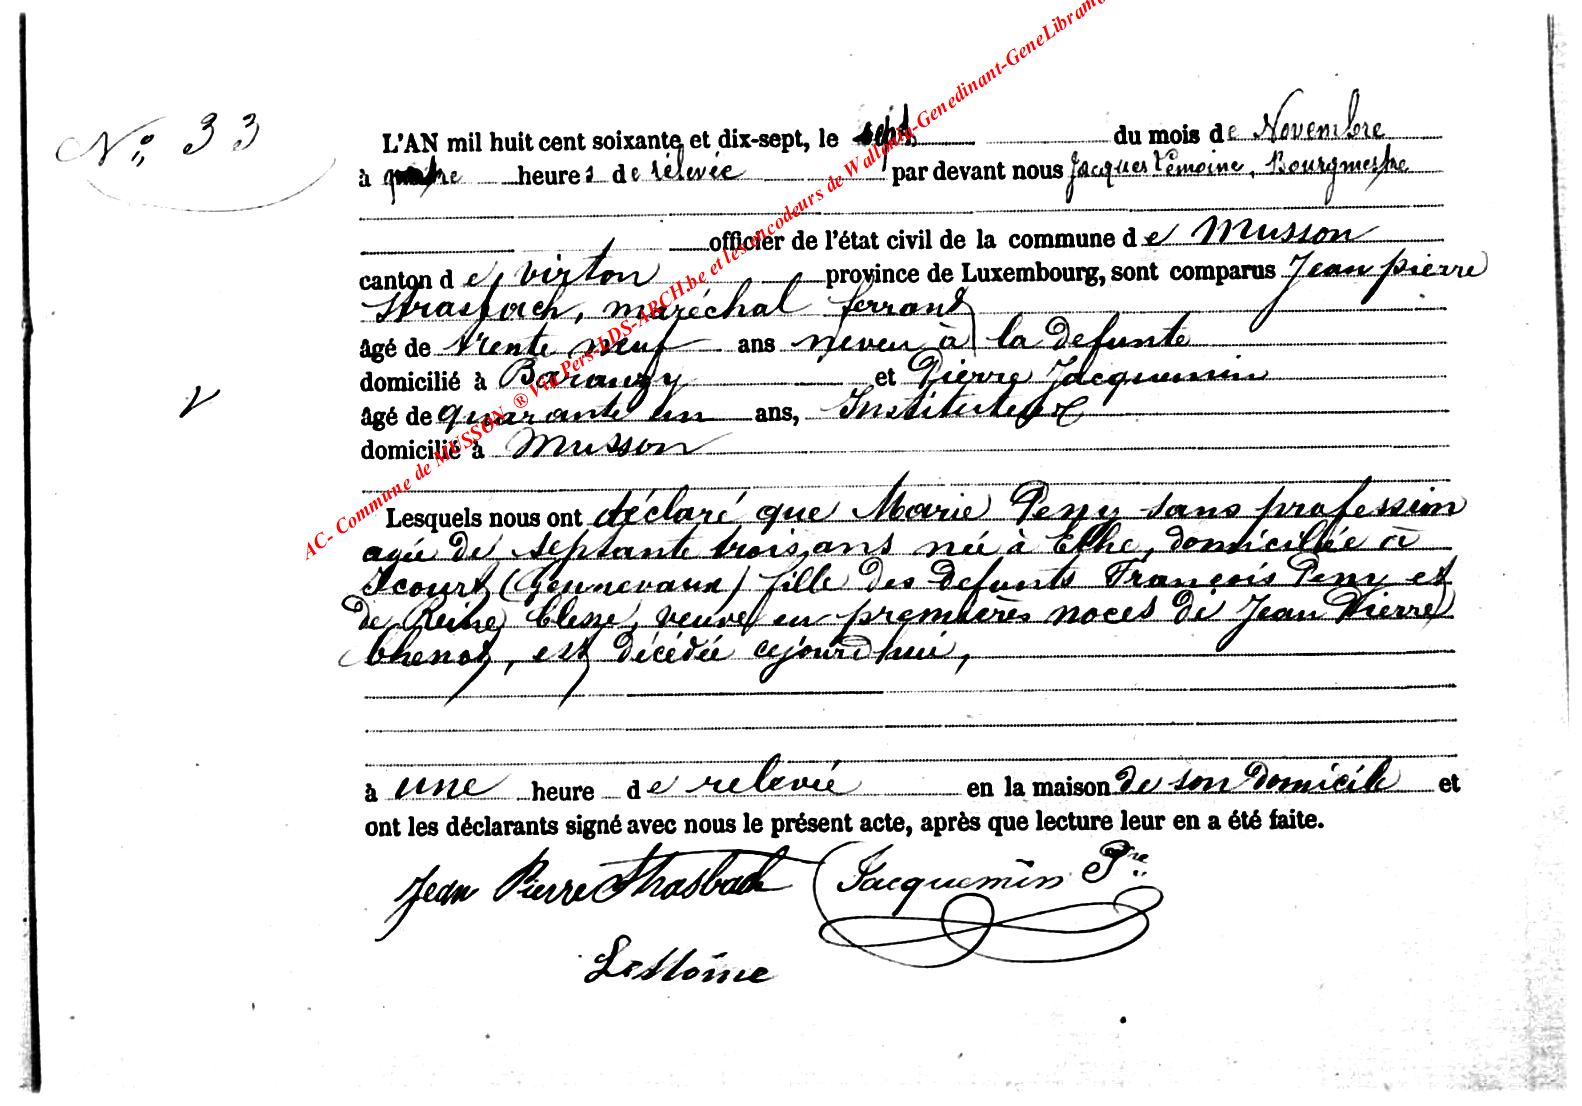 N° 33
L'AN mil huit cent soixante et dix-sept, le sept du mois de Novembre
à quatre heures de rélevée par devant nous Jacques Lemoine, Bourgmestre
officier de l'état civil de la commune de Musson
canton de Virton province de Luxembourg, sont comparus Jean pierre
Strasbach, maréchal ferrant
âgé de trente neuf ans neveu à la defunte
domicilié à Baranzy et Pierre Jacquemin
âgé de quarante un ans, Instituteur
domicilié à Musson
Lesquels nous ont déclaré que Marie Peny sans profession
agée de septante trois ans née à Ethe, domiciliée à
Icourt (Gennevaux) fille des defunts François Peny et
de Reine Clesse, veuve en premières noces de Jean Pierre
Chenot, est décédée cejourd'hui,
à une heure de relevée en la maison de son domicile et
ont les déclarants signé avec nous le présent acte, après que lecture leur en a été faite.
Jean Pierre Strasbach Jacquemin Pre
LeMoine
AC- Commune de MUSSON ® Via Pers-LDS-ARCH.be et les encodeurs de Wallonia-Genedinant-GeneLibramont